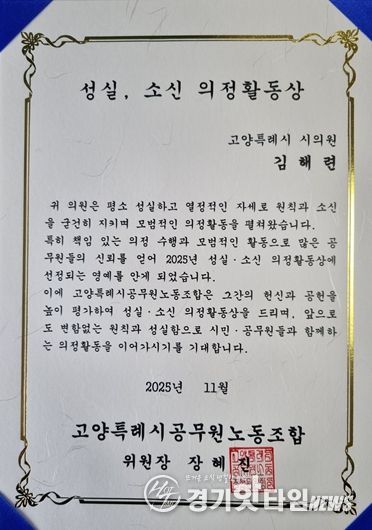 성실, 소신 의정활동상
고양특례시 시의원
김 해 련
귀 의원은 평소 성실하고 열정적인 자세로 원칙과 소신
을 굳건히 지키며 모범적인 의정활동을 펼쳐왔습니다.
특히 책임 있는 의정 수행과 모범적인 활동으로 많은 공
무원들의 신뢰를 얻어 2025년 성실·소신 의정활동상에
선정되는 영예를 안게 되었습니다.
이에 고양특례시공무원노동조합은 그간의 헌신과 공헌을
높이 평가하여 성실·소신 의정활동상을 드리며, 앞으로
도 변함없는 원칙과 성실함으로 시민·공무원들과 함께하
는 의정활동을 이어가시기를 기대합니다.
2025년 11월
고양특례시공무원노동조합
위원장 장 혜 진
경기잇타임NEWS